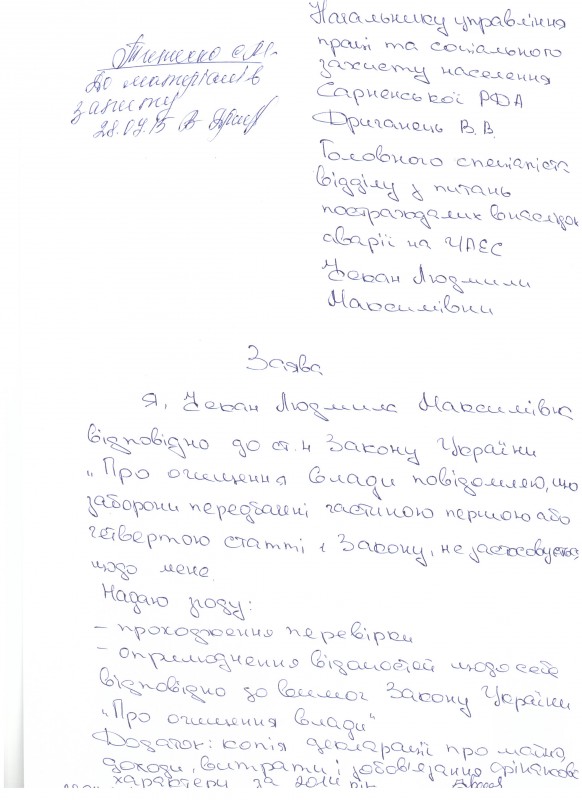 Начальнику управління
праці та соціального
захисту населення
Сарненської РДА
Дриганець В.В.
Головного спеціаліста
відділу з питань
постраждалих внаслідок
аварії на ЧАЕС
Чекан Людмили
Максимівни
до матеріалів
запиту
28.04.15
Заява
Я, Чекан Людмила Максимівна
відповідно до ст. 4 Закону України
„Про очищення влади повідомляю, що
заборони передбачені частиною першою або
четвертою статті 1 Закону, не застосовуються
щодо мене.
Надаю згоду:
- проходження перевірки
- оприлюднення відомостей щодо себе
відповідно до вимог Закону України
„Про очищення влади"
Додаток: копія декларації про майно,
доходи, витрати і зобов'язання фінансового
характеру за 2014 рік